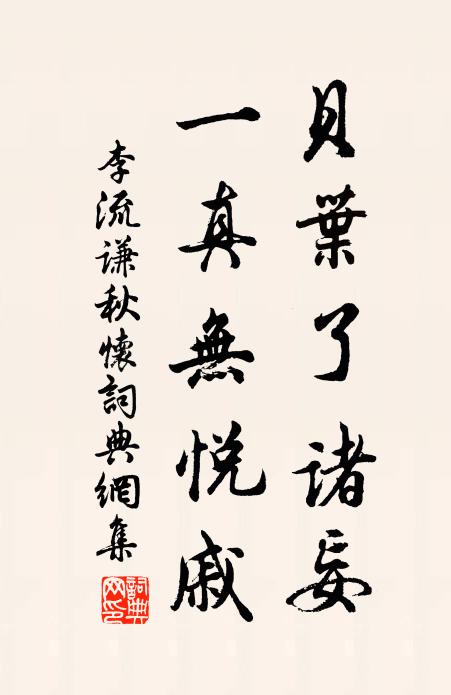 貝葉了諸妄
一真無悅戚
李流謙秋懷詞典網集
詞典網印